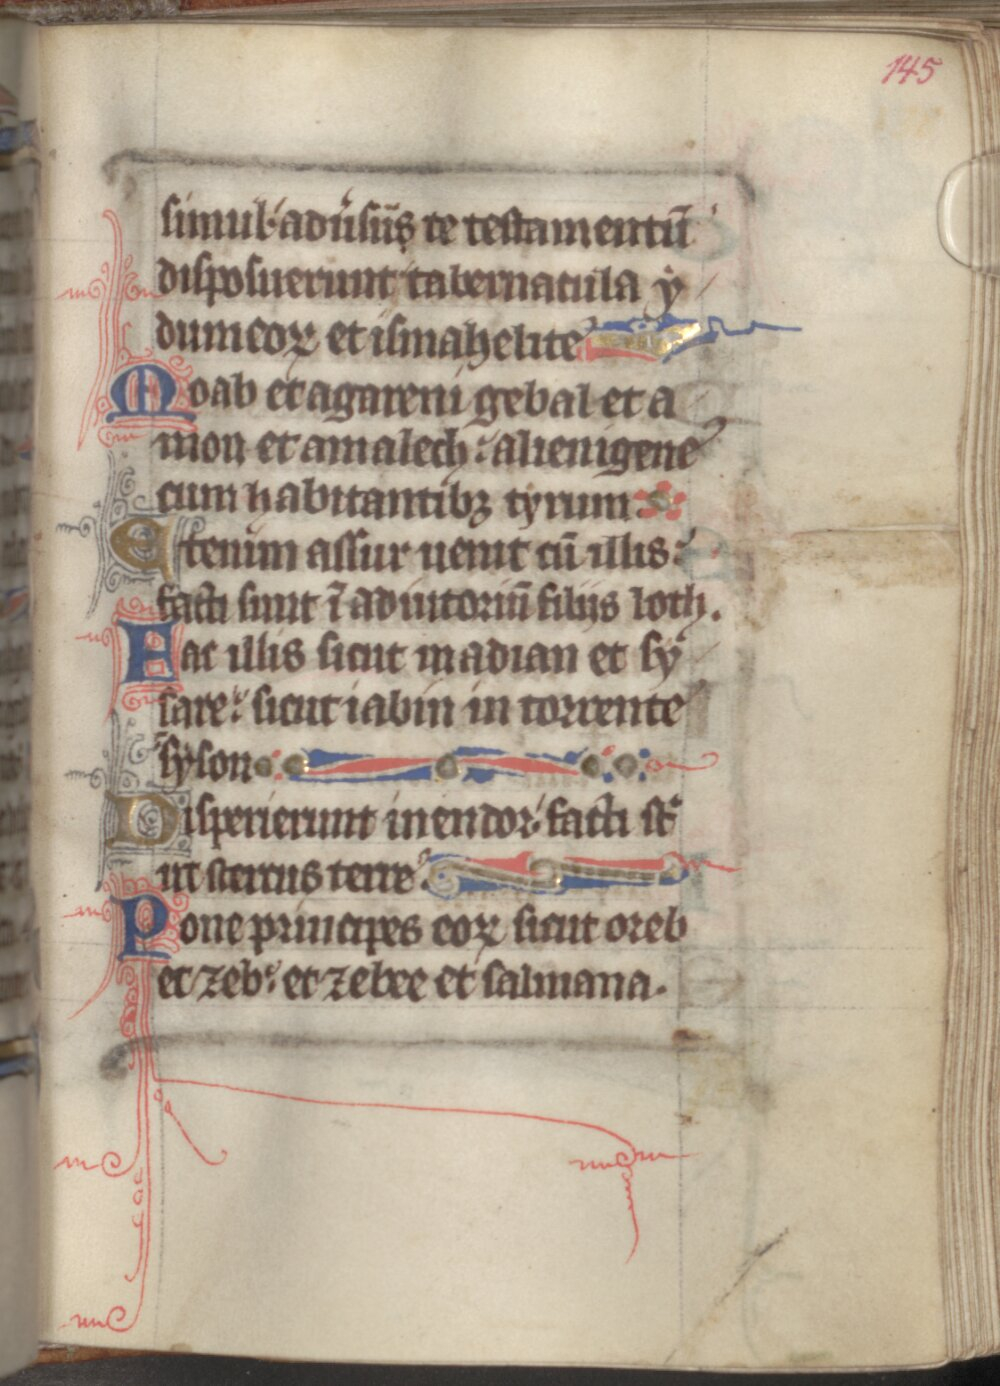 145
simul· adũsũs te testamentũ
disposuerunt tabernacula y
dumeoꝝ et ismahelite
Moab et agareni gebal et a
mon et amalech: alienigene
cum habitantibꝫ tyrum:
Etenim assur uenit cũ illis:
facti sunt ĩ adiutoriũ filijs loth.
Fac illis sicut madian et sy
sare: sicut iabin in torrente
syson
Disperierunt in endor: facti sũt
ut stercus terre:
Pone principes eoꝝ sicut oreb
et zeb: et zebee et salmana.